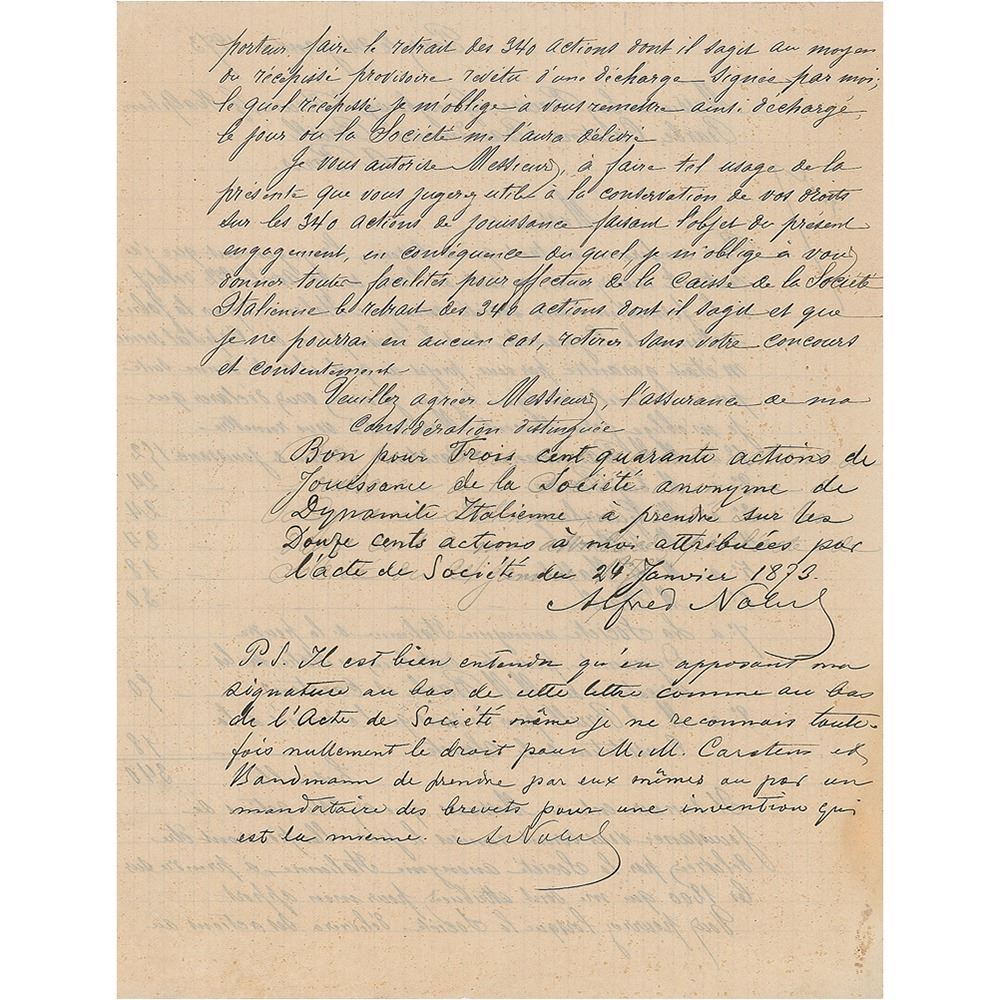 porteur faire le retrait des 340 actions dont il sagit au moyen
du récépissé provisoire revêtu d'une décharge signée par moi;
le quel récépissé je m'oblige à vous remettre ainsi déchargé,
le jour ou la Société me l'aura délivré
Je vous autorise Messieurs, à faire tel usage de la
présente que vous jugerez utile à la conservation de vos droits
sur les 340 actions de jouissance faisant l'objet du présent
engagement, en conséquence du quel je m'oblige à vous
donner toutes facilités pour effectuer de la caisse de la Société
Italienne le retrait des 340 actions dont il sagit et que
je ne pourrai en aucun cas, retirer sans votre concours
et consentement
Veuillez agréer Messieurs, l'assurance de ma
Considération distinguée
Bon pour Trois cent quarante actions de
Jouissance de la Société anonyme de
Dynamite Italienne à prendre sur les
Douze cents actions à moi attribuées par
l'acte de Société du 24 Janvier 1873.
Alfred Nobel
P.S. Il est bien entendu qu'en apposant ma
signature au bas de cette lettre comme au bas
de l'Acte de Société même je ne reconnais toute-
fois nullement le droit pour M.M. Carstens et
Bandmann de prendre par eux mêmes ou par un
mandataire des brevets pour une invention qui
est la mienne. A Nobel